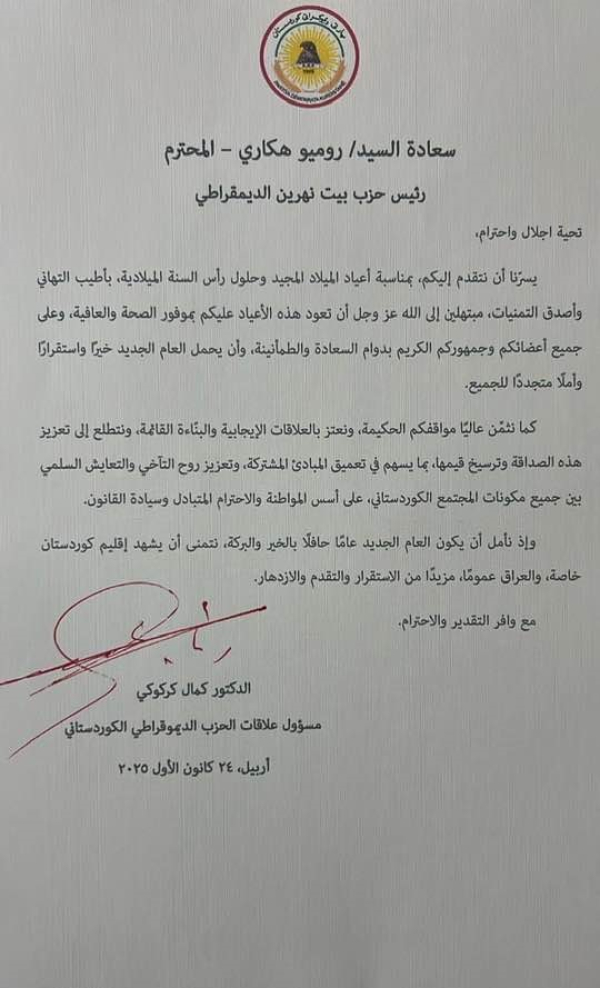 پارتی دیموکراتی کوردستان
P.D.K
1946
PARTIYA DEMOKRATA KURDISTANÊ
سعادة السيد/ روميو هكاري – المحترم
رئيس حزب بيت نهرين الديمقراطي
تحية اجلال واحترام،
يسرّنا أن نتقدم إليكم، بمناسبة أعياد الميلاد المجيد وحلول رأس السنة الميلادية، بأطيب التهاني
وأصدق التمنيات، مبتهلين إلى الله عز وجل أن تعود هذه الأعياد عليكم بموفور الصحة والعافية، وعلى
جميع أعضائكم وجمهوركم الكريم بدوام السعادة والطمأنينة، وأن يحمل العام الجديد خيرًا واستقرارًا
وأملًا متجددًا للجميع.
كما نثمّن عاليًا مواقفكم الحكيمة، ونعتز بالعلاقات الإيجابية والبنّاءة القائمة، ونتطلع إلى تعزيز
هذه الصداقة وترسيخ قيمها، بما يسهم في تعميق المبادئ المشتركة، وتعزيز روح التآخي والتعايش السلمي
بين جميع مكونات المجتمع الكوردستاني، على أسس المواطنة والاحترام المتبادل وسيادة القانون.
وإذ نأمل أن يكون العام الجديد عامًا حافلًا بالخير والبركة، نتمنى أن يشهد إقليم كوردستان
خاصة، والعراق عمومًا، مزيدًا من الاستقرار والتقدم والازدهار.
مع وافر التقدير والاحترام.
الدكتور كمال كركوكي
مسؤول علاقات الحزب الديموقراطي الكوردستاني
أربيل، ٢٤ كانون الأول ٢٠٢٥